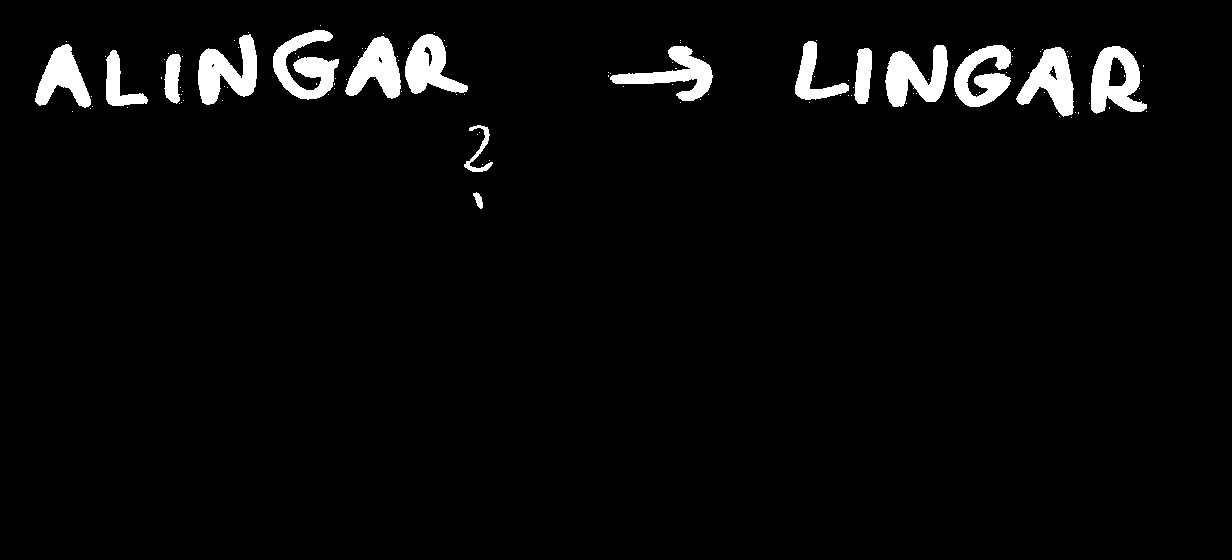 ALINGAR → LINGAR
?